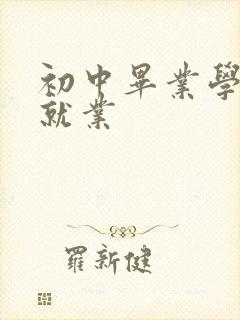 初中畢業學
就業
羅新健